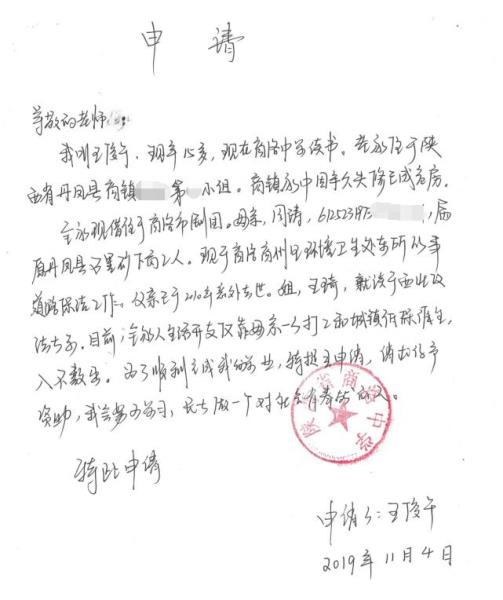 申 请
尊敬的老师:
我叫王俊午,现年15岁,现在商洛中学读书。老家住于陕
西省丹凤县商镇 第 小组。商镇家中因年久失修已成危房。
全家现借住于商洛市剧团。母亲,周涛,6125231975 ,属
原丹凤县石墨矿下岗工人。现于商洛商州区环境卫生处东所从事
道路保洁工作。父亲已于2010年意外去世。姐,王琦,就读于西北政
法大学。目前,全家人生活开支仅靠母亲一人打工和城镇低保维生,
入不敷出。为了顺利完成我的学业,特提出申请,请求给予
资助,我会努力学习,长大做一个对社会有养的人。
特此申请
陕西省商洛中学
申请人:王俊午
2019年11月4日